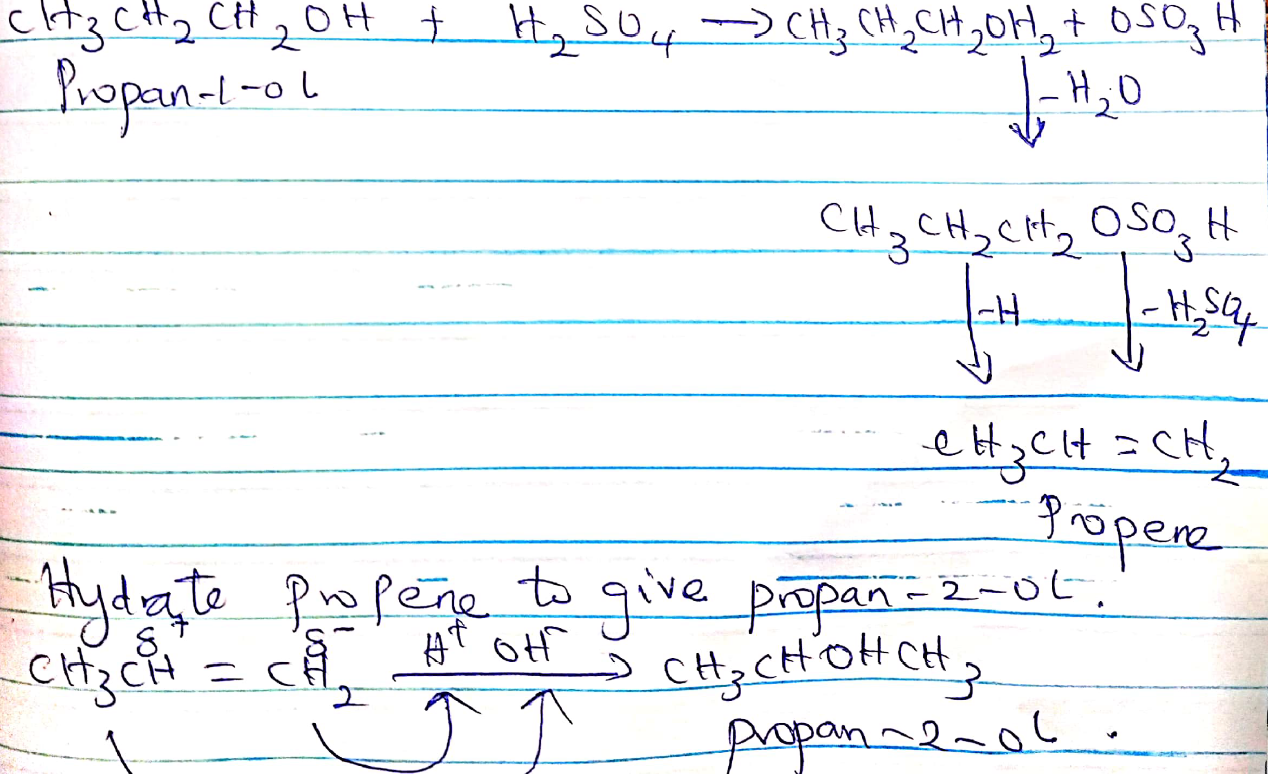 CH₃CH₂CH₂OH + H₂SO₄ → CH₃CH₂CH₂OH₂ + OSO₃H
Propan-1-ol ↓ -H₂O
CH₃CH₂CH₂OSO₃H
↓ -H ↓ -H₂SO₄
CH₃CH = CH₂
Propene
Hydrate propene to give propan-2-ol.
δ⁺ δ⁻ H⁺ OH⁻
CH₃CH = CH₂ → CH₃CHOHCH₃
propan-2-ol.